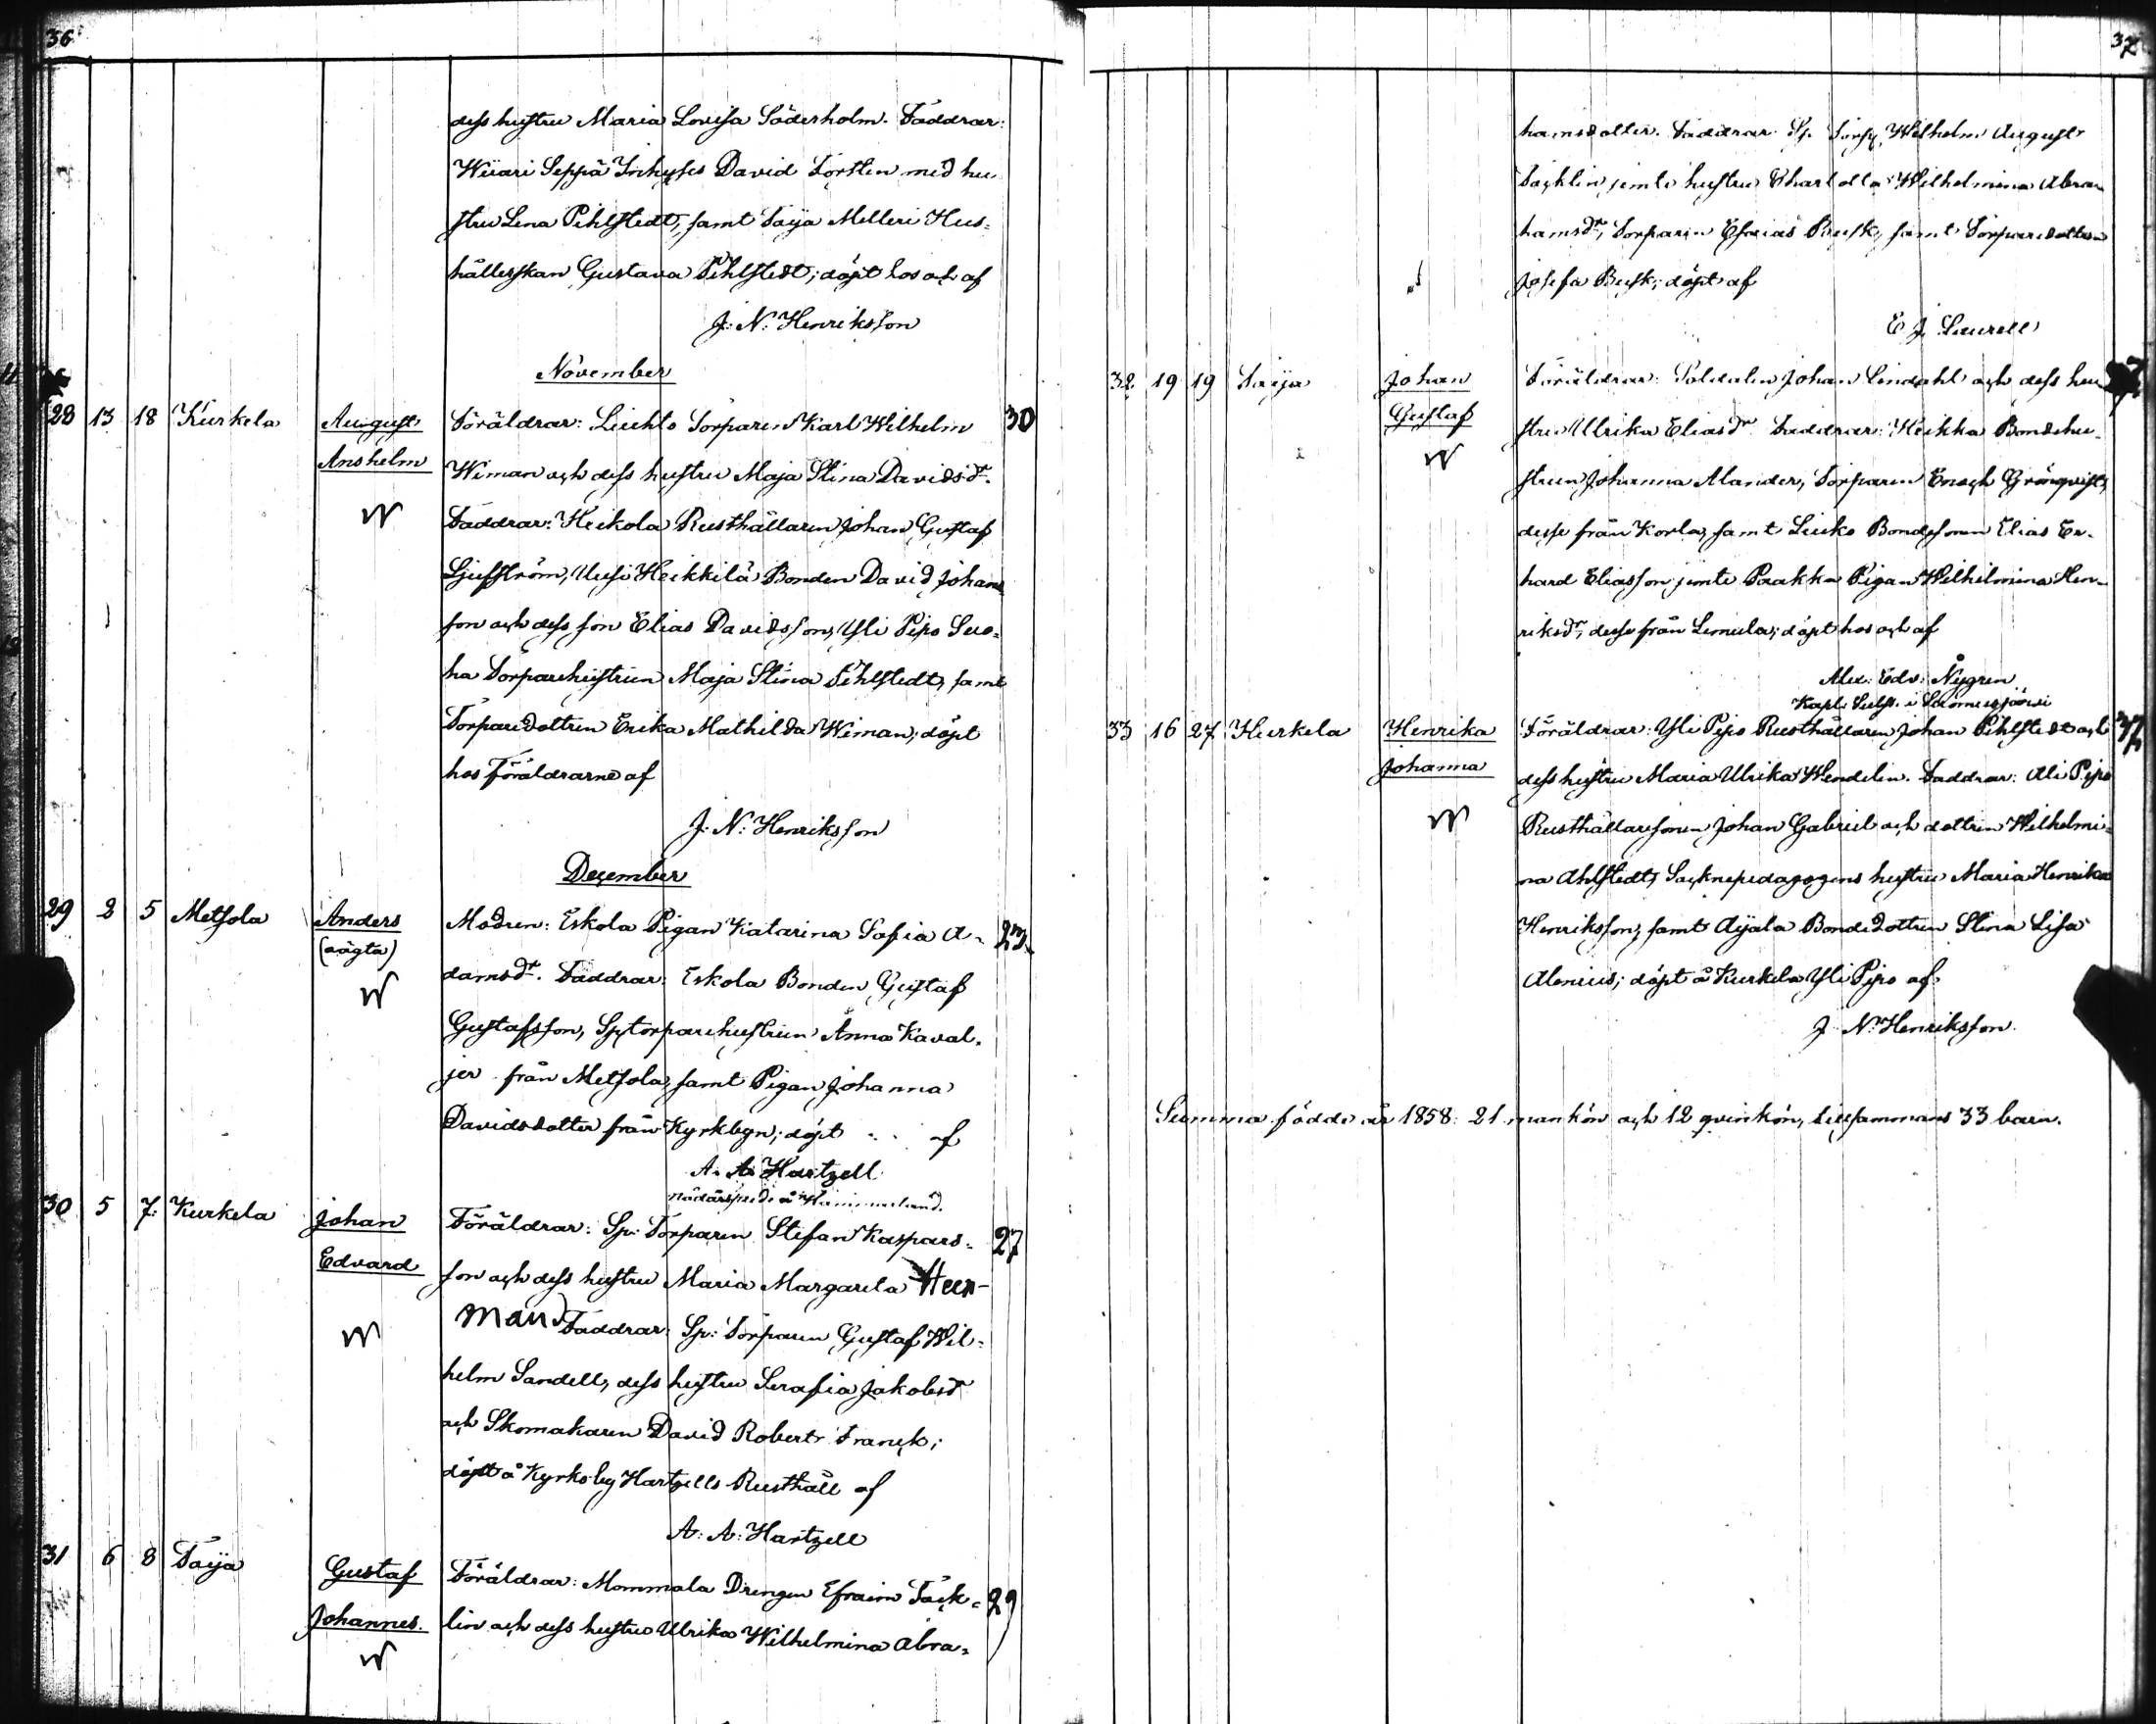 36
dess hustru Maria Lovisa Söderholm. Faddrar:
Wiiari Seppä Inhyses David Törsten med hu-
stru Lena Pihlstedt, samt Saija Melleri Hus-
hållerskan Gustava Pihlstedt; döpt hos och af
J: N: Henriksson
November
28 13 18 Kurkela August Föräldrar: Liuhto Torparen Karl Wilhelm 30
Anshelm Wiman och dess hustru Maja Stina Davidsdr.
Faddrar: Heikola Rusthållaren Johan Gustaf
Ljusström, Uusi Heikkilä Bonden David Johans
son och dess son Elias Davidsson, Yli Pipo Suo-
ha Torparehustrun Maja Stina Pihlstedt, samt
Torparedottren Erika Mathilda Wiman; döpt
hos Föräldrarne af
J: N: Henriksson
December
29 2 5 Metsola Anders Modren: Eskola Pigan Katarina Sofia A- 23
(oägta) damsdr. Faddrar: Eskola Bonden Gustaf
Gustafsson, Sp: torparehustrun Anna Kaval-
jer från Metsola, samt Pigan Johanna
Davidsdotter från Kyrkbyn; döpt af
A: A: Hartzell
30 5 7. Kurkela Johan Föräldrar: Sp: Torparen Stefan Kaspars- 27
Edvard son och dess hustru Maria Margareta Heer-
man Faddrar: Sp: Torparen Gustaf Wil-
helm Sandell, dess hustru Serafia Jakobsdr
och Skomakaren David Robert Franck;
döpt å Kyrkoby Hartzells Rusthåll af
A: A: Hartzell
31 6 8 Saija Gustaf Föräldrar: Mommala Drengen Efraim Täck- 29
Johannes. lin och dess hustru Ulrika Wilhelmina Abra-
37
hamsdotter. Faddrar: Sp. Torp: Wilhelm August
Täcklin jemte hustru Charlotta Wilhelmina Abra
hamsdr, Torparen Esaias Busk, samt Torparedottren
Josefa Busk; döpt af
E J. Laurell
32. 19 19 Saija Johan Föräldrar: Soldaten Johan Lindahl och dess hu
Gustaf stru Ulrika Eliasdr. Faddrar: Heikka Bondehu-
strun Johanna Alander, Torparen Enoch Grönqvist,
desse från Korla, samt Liuko Bondesonen Elias Er-
hard Eliasson jemte Paakka Pigan Wilhelmina Hen-
riksdr, desse från Lemula; döpt hos och af
Alex: Edv: Nygren
Kapl: Subst. i Suomusjärvi
33 16 27 Kurkela Henrika Föräldrar: Yli Pipo Rusthållaren Johan Pihlstedt och 37
Johanna dess hustru Maria Ulrika Wendelin. Faddrar: Ali Pipo
Rusthållaresonen Johan Gabriel och dottren Wilhelmi-
na Ahlstedt, Socknepedagogens hustru Maria Henrika
Henriksson, samt Aijala Bondedottren Stina Lisa
Alenius; döpt å Kurkela Yli Pipo af
J. N: Henriksson
Summa födde år 1858: 21 mankön och 12 qvinkön, tillsammans 33 barn.